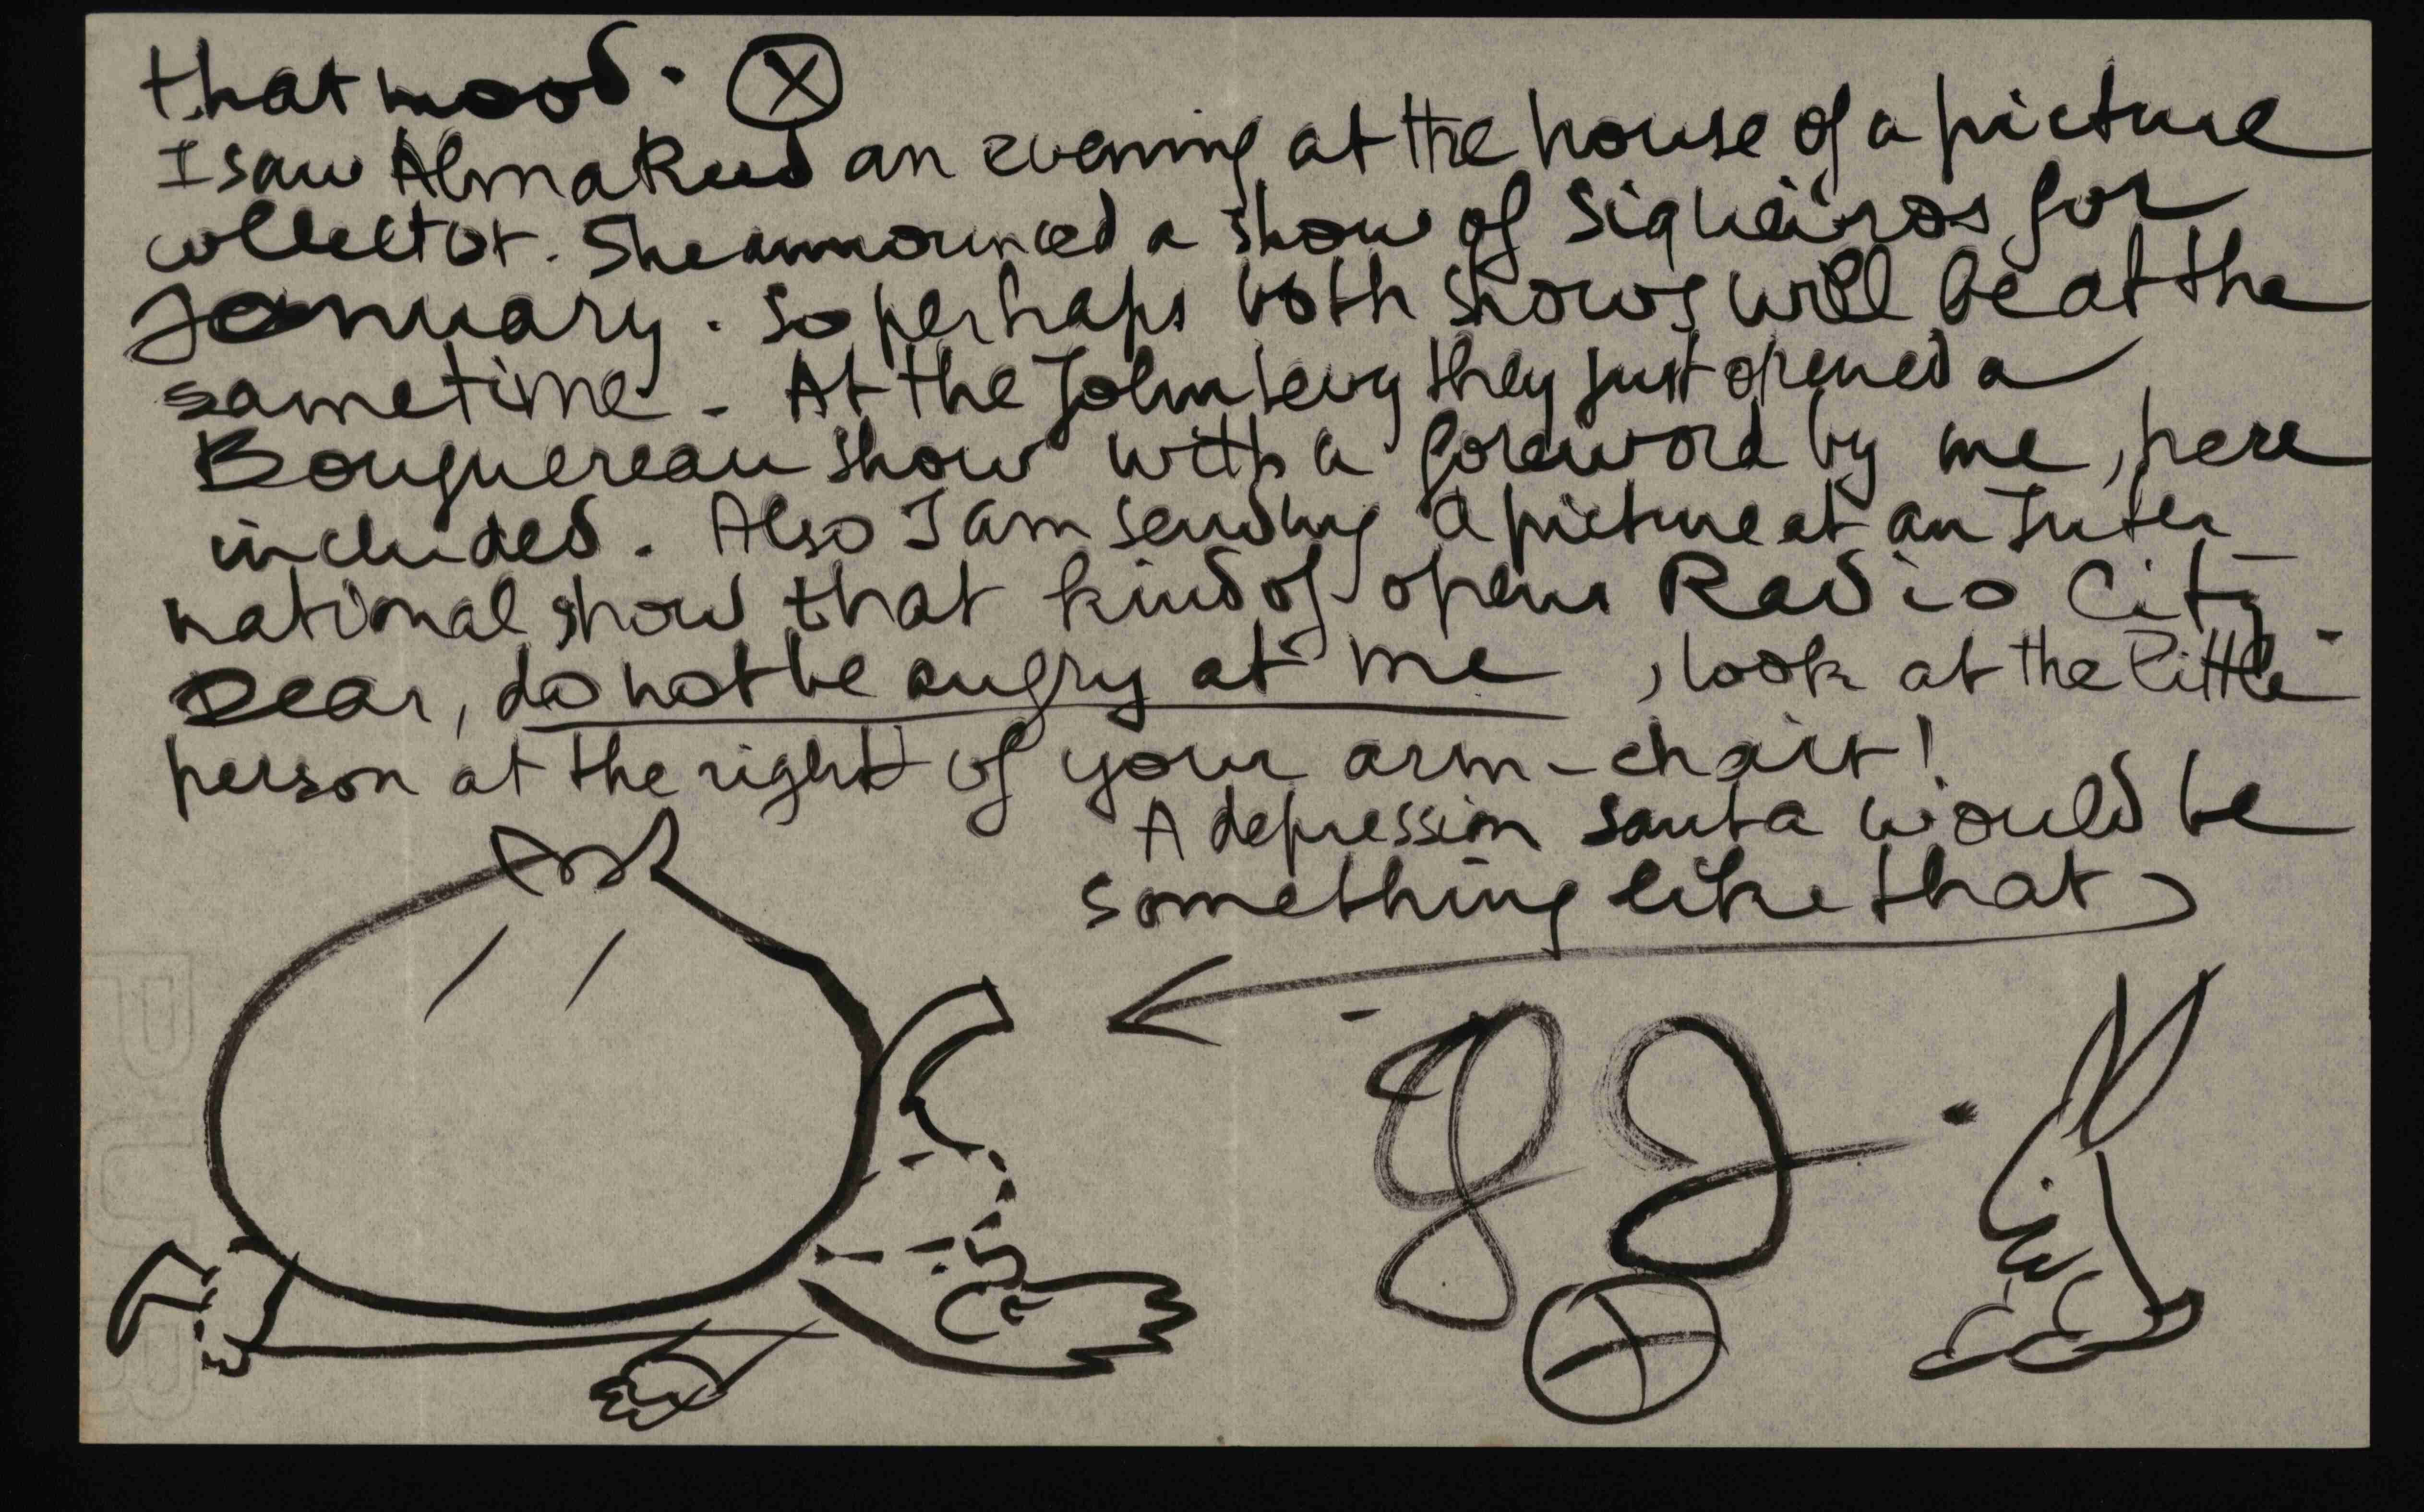 that mood. X
I saw Alma Reed an evening at the house of a picture
collector. She announced a show of Siqueiros for
January. So perhaps both shows will be at the
same time. At the John Levy they just opened a
Bouguereau show with a foreword by me, here
included. Also I am sending a picture at an Inter-
national show that kind of opens Radio City.
Dear, do not be angry at me, look at the little
person at the right of your arm-chair!
A depression santa would be
something like that
PUB